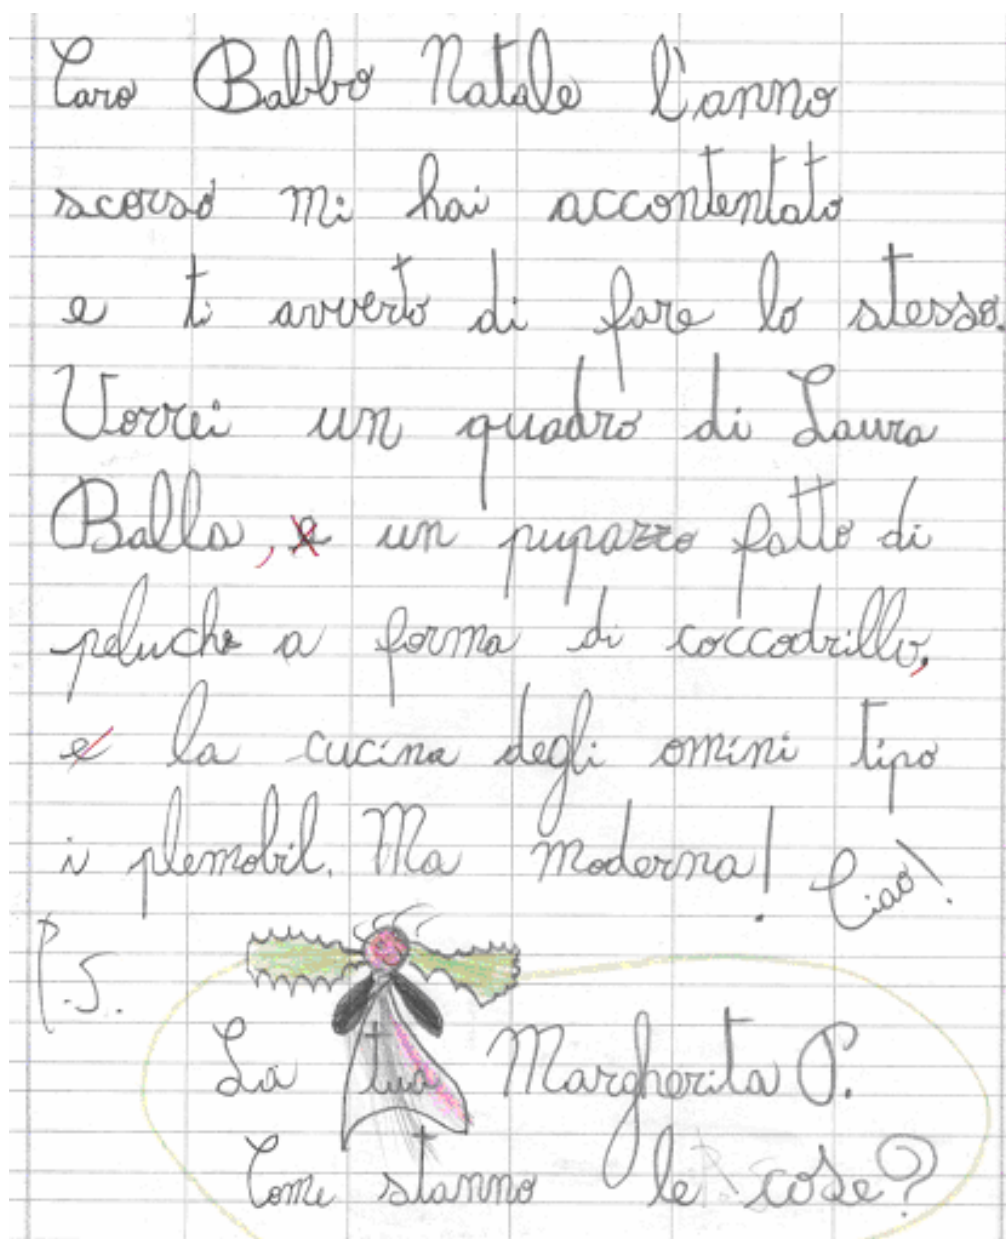 Caro Babbo Natale l'anno
scorso mi hai accontentato
e ti avverto di fare lo stesso.
Vorrei un quadro di Laura
Balla, e un pupazzo fatto di
peluche a forma di coccodrillo,
e la cucina degli omini tipo
i plemobil. Ma moderna! Ciao!
P.S.
La tua Margherita P.
Come stanno le cose?